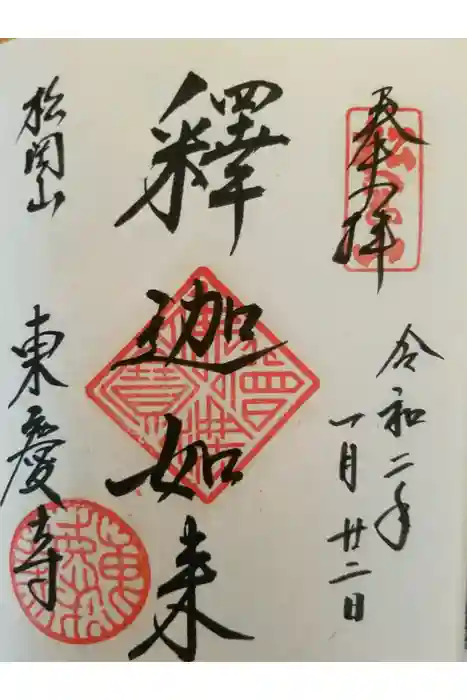 奉拝
令和二年
一月廿二日
釋迦如来
松岡山
東慶寺